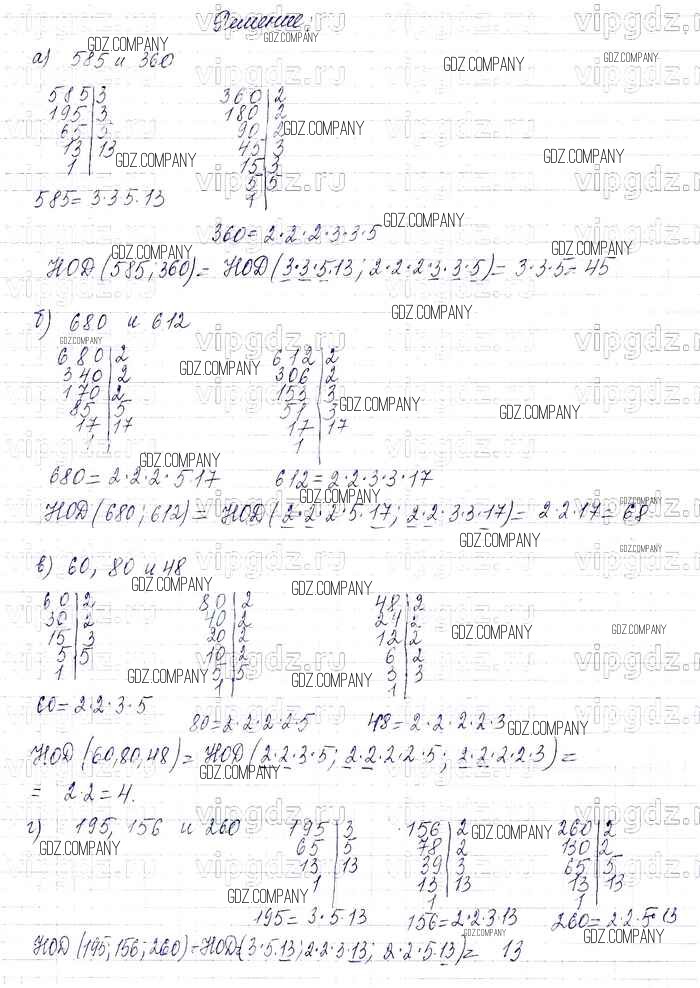 Решение:
а) 585 и 360
585 | 3
195 | 3
65 | 5
13 | 13
1
585 = 3·3·5·13
360 | 2
180 | 2
90 | 2
45 | 3
15 | 3
5 | 5
1
360 = 2·2·2·3·3·5
НОД (585; 360) = НОД (3·3·5·13; 2·2·2·3·3·5) = 3·3·5 = 45
б) 680 и 612
680 | 2
340 | 2
170 | 2
85 | 5
17 | 17
1
612 | 2
306 | 2
153 | 3
51 | 3
17 | 17
1
680 = 2·2·2·5·17
612 = 2·2·3·3·17
НОД (680; 612) = НОД (2·2·2·5·17; 2·2·3·3·17) = 2·2·17 = 68
в) 60, 80 и 48
60 | 2
30 | 2
15 | 3
5 | 5
1
80 | 2
40 | 2
20 | 2
10 | 2
5 | 5
1
48 | 2
24 | 2
12 | 2
6 | 2
3 | 3
1
60 = 2·2·3·5
80 = 2·2·2·2·5
48 = 2·2·2·2·3
НОД (60, 80, 48) = НОД (2·2·3·5; 2·2·2·2·5; 2·2·2·2·3) =
= 2·2 = 4.
г) 195, 156 и 260
195 | 3
65 | 5
13 | 13
1
156 | 2
78 | 2
39 | 3
13 | 13
1
260 | 2
130 | 2
65 | 5
13 | 13
1
195 = 3·5·13
156 = 2·2·3·13
260 = 2·2·5·13
НОД (195; 156; 260) = НОД (3·5·13; 2·2·3·13; 2·2·5·13) = 13
GDZ.COMPANY
vipgdz.ru